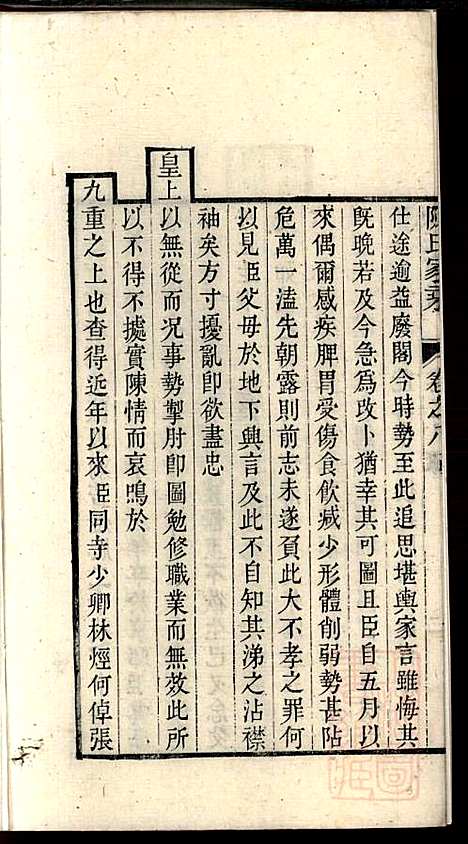 陳氏家乘
卷之八
仕途逾益廢閣今時勢至此追思堪輿家言雖悔其
旣晚若及今急爲改卜猶幸其可圖且臣自五月以
來偶爾感疾脾胃受傷食飮减少形體削弱勢甚阽
危萬一溘先朝露則前志未遂負此大不孝之罪何
以見臣父母於地下興言及此不自知其涕之沾襟
袖矣方寸擾亂卽欲盡忠
皇上以無從而况事勢掣肘卽圖勉修職業而無效此所
以不得不據實陳情而哀鳴於
九重之上也查得近年以來臣同寺少卿林烴何倬張